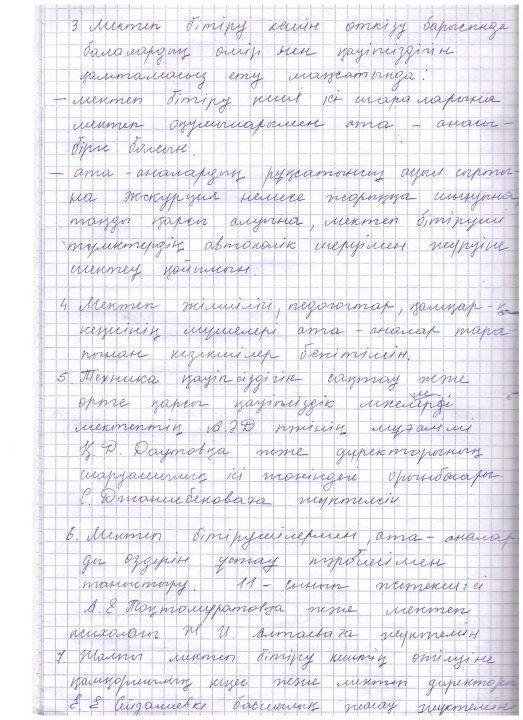 3 Мектеп бітіру кешін өткізу барысында
балалардың өмірі мен қауіпсіздігін
қамтамасыз ету мақсатында:
– мектеп бітіру кеші іс шараларына
мектеп оқушыларымен ата – анасы
бірге болсын.
– ата – аналардың рұқсатынсыз ауыл сырты-
на экскурсия немесе жорыққа шығуына
таңды қарсы алуына, мектеп бітіруші
түлектердің автокөлік меруімен жүруіне
шектеу қойылсын.
4 Мектеп әкімшілігі, педагогтар, қамқор-
кеңесінің мүшелері ата – аналар тара-
пынан кезекшілер бекітілсін.
5. Техника қауіпсіздігін сақтау және
өртке қарсы қауіпсіздік
мектептің АӘД пәнінің мұғалімі
Қ. Д. Даутовқа және директорының
шаруашылық ісі жөніндегі орынбасары
С. Джанисбековаға жүктелсін
6. Мектеп бітірушілермен, ата – аналар-
ды өздерін ұстау тәртібімен
таныстыру. 11 – сынып жетекшісі
А. Е Тоқтомуратовқа және мектеп
психологы Ж. И Алтаеваға жүктелсін
7 Жалпы мектеп бітіру кешінің өтілуіне
қамқоршылық кеңес және мектеп директоры
Е Е Сейдалиевке басшылық жасау жүктелсін